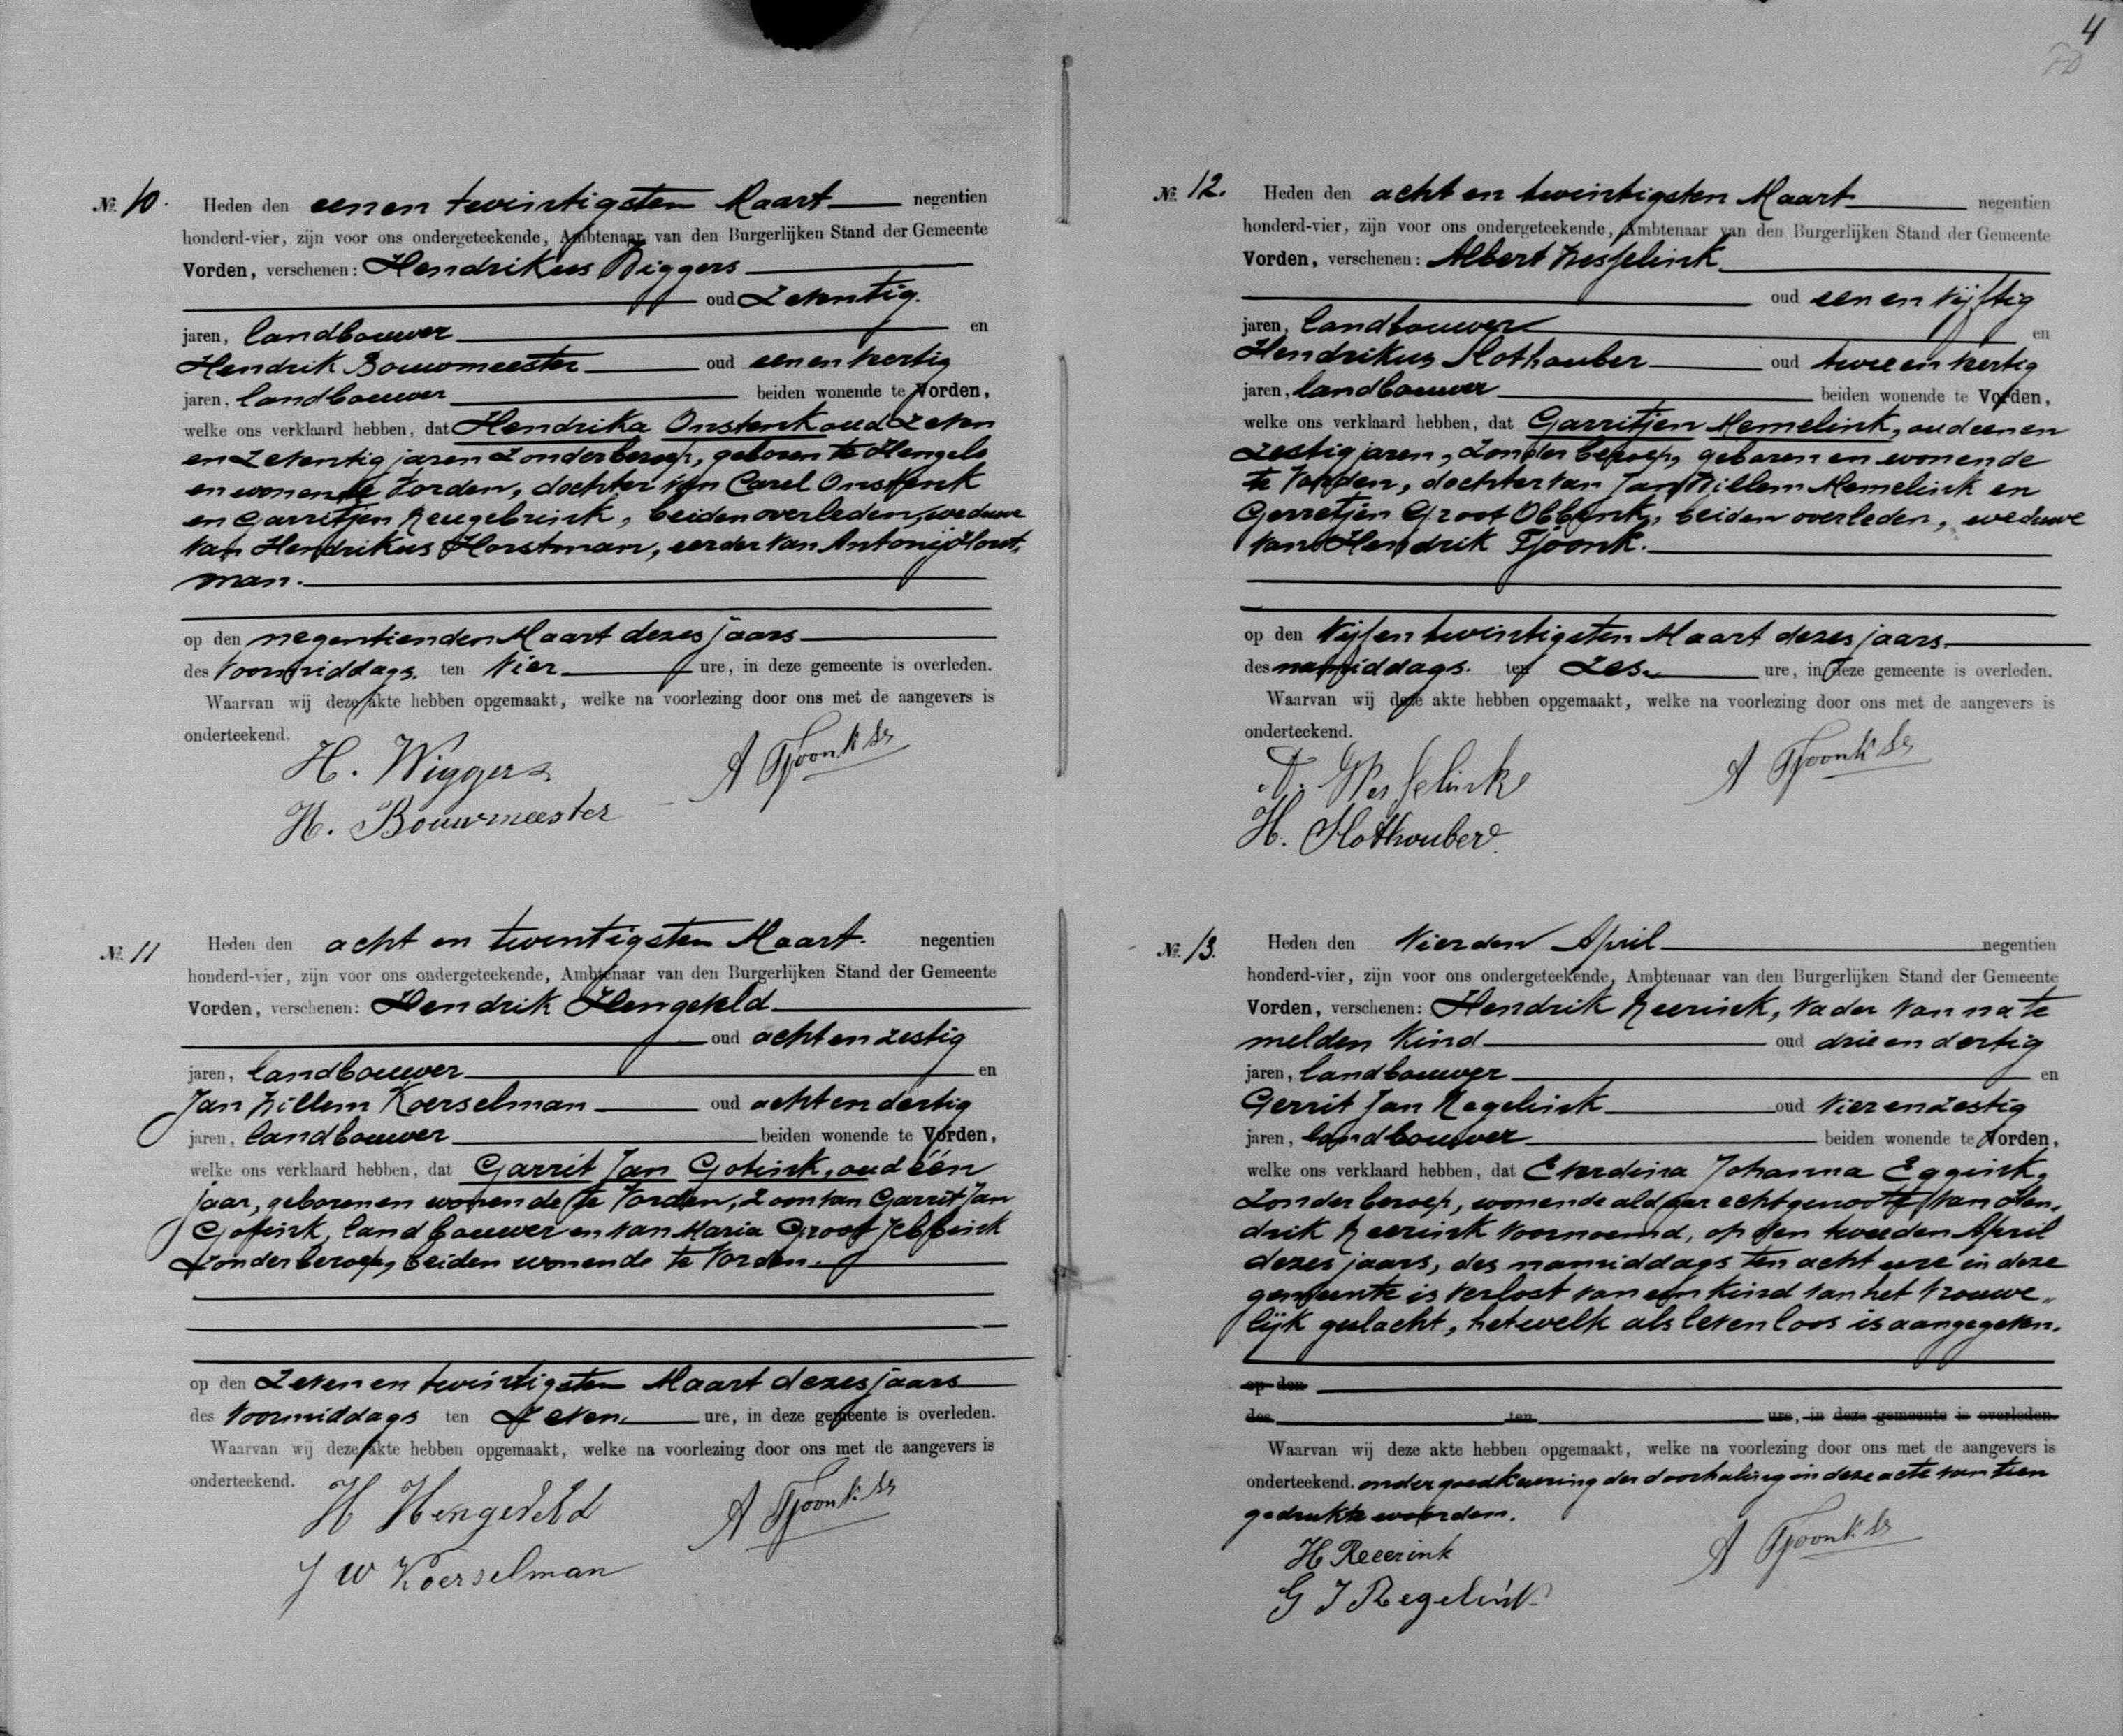 4
No. 10. Heden den een en twintigsten Maart negentien
honderd-vier, zijn voor ons ondergeteekende, Ambtenaar van den Burgerlijken Stand der Gemeente
Vorden, verschenen: Hendrikus Wiggers
oud Zeventig
jaren, landbouwer en
Hendrik Bouwmeester oud een en veertig
jaren, landbouwer beiden wonende te Vorden,
welke ons verklaard hebben, dat Hendrika Onstenk oud Zeven
en Zeventig jaren Zonder beroep, geboren te Hengelo
en wonende Vorden, dochter van Carel Onstenk
en Garritjen Reugebrink, beiden overleden, weduwe
van Hendrikus Horstman, eerder van Antonij Horst„
man.
op den negentienden Maart dezes jaars
des Voormiddags. ten Vier ure, in deze gemeente is overleden.
Waarvan wij deze akte hebben opgemaakt, welke na voorlezing door ons met de aangevers is
onderteekend.
H. Wiggers A Tjoonk Sr
H. Bouwmeester
No. 11 Heden den acht en twintigsten Maart. negentien
honderd-vier, zijn voor ons ondergeteekende, Ambtenaar van den Burgerlijken Stand der Gemeente
Vorden, verschenen: Hendrik Hengeveld
oud acht en zestig
jaren, landbouwer en
Jan Willem Koerselman oud acht en dertig
jaren, landbouwer beiden wonende te Vorden,
welke ons verklaard hebben, dat Garrit Jan Gotink, oud één
jaar, geboren en wonende te Vorden, Zoon van Garrit Jan
Gotink, landbouwer en van Maria Groot Jebbink
Zonder beroep, beiden wonende te Vorden.
op den Zeven en twintigsten Maart dezes jaars
des Voormiddags ten Zeven ure, in deze gemeente is overleden.
Waarvan wij deze akte hebben opgemaakt, welke na voorlezing door ons met de aangevers is
onderteekend.
H Hengeveld A Tjoonk Sr
J W Koerselman
No. 12. Heden den acht en twintigsten Maart negentien
honderd-vier, zijn voor ons ondergeteekende, Ambtenaar van den Burgerlijken Stand der Gemeente
Vorden, verschenen: Albert Wesselink
oud een en Vijftig
jaren, landbouwer en
Hendrikus Slothouber oud twee en veertig
jaren, landbouwer beiden wonende te Vorden,
welke ons verklaard hebben, dat Garritjen Memelink, oud een en
Zestig jaren, Zonder beroep, geboren en wonende
te Vorden, dochter van Jan Willem Memelink en
Gerretjen Groot Obbink, beiden overleden, weduwe
van Hendrik Tjoonk.
op den Vijf en twintigsten Maart dezes jaars.
des namiddags. ten Zes ure, in deze gemeente is overleden.
Waarvan wij deze akte hebben opgemaakt, welke na voorlezing door ons met de aangevers is
onderteekend.
A. Wesselink A Tjoonk Sr
H. Slothouber
No. 13. Heden den Vierden April negentien
honderd-vier, zijn voor ons ondergeteekende, Ambtenaar van den Burgerlijken Stand der Gemeente
Vorden, verschenen: Hendrik Reerink, Vader van na te
melden Kind oud drie en dertig
jaren, landbouwer en
Gerrit Jan Regelink oud Vier en Zestig
jaren, landbouwer beiden wonende te Vorden,
welke ons verklaard hebben, dat Everdina Johanna Eggink,
Zonder beroep, wonende aldaar echtgenoote van Hen„
drik Reerink Voornoemd, op den tweeden April
dezes jaars, des namiddags ten acht ure in deze
gemeente is verlost van een Kind van het Vrouwe„
lijk geslacht, hetwelk als levenloos is aangegeven.
op den
des ten ure, in deze gemeente is overleden.
Waarvan wij deze akte hebben opgemaakt, welke na voorlezing door ons met de aangevers is
onderteekend. onder goedkeuring der doorhaling in deze acte van tien
gedrukte woorden.
H Reeerink A Tjoonk Sr
G J Regelink